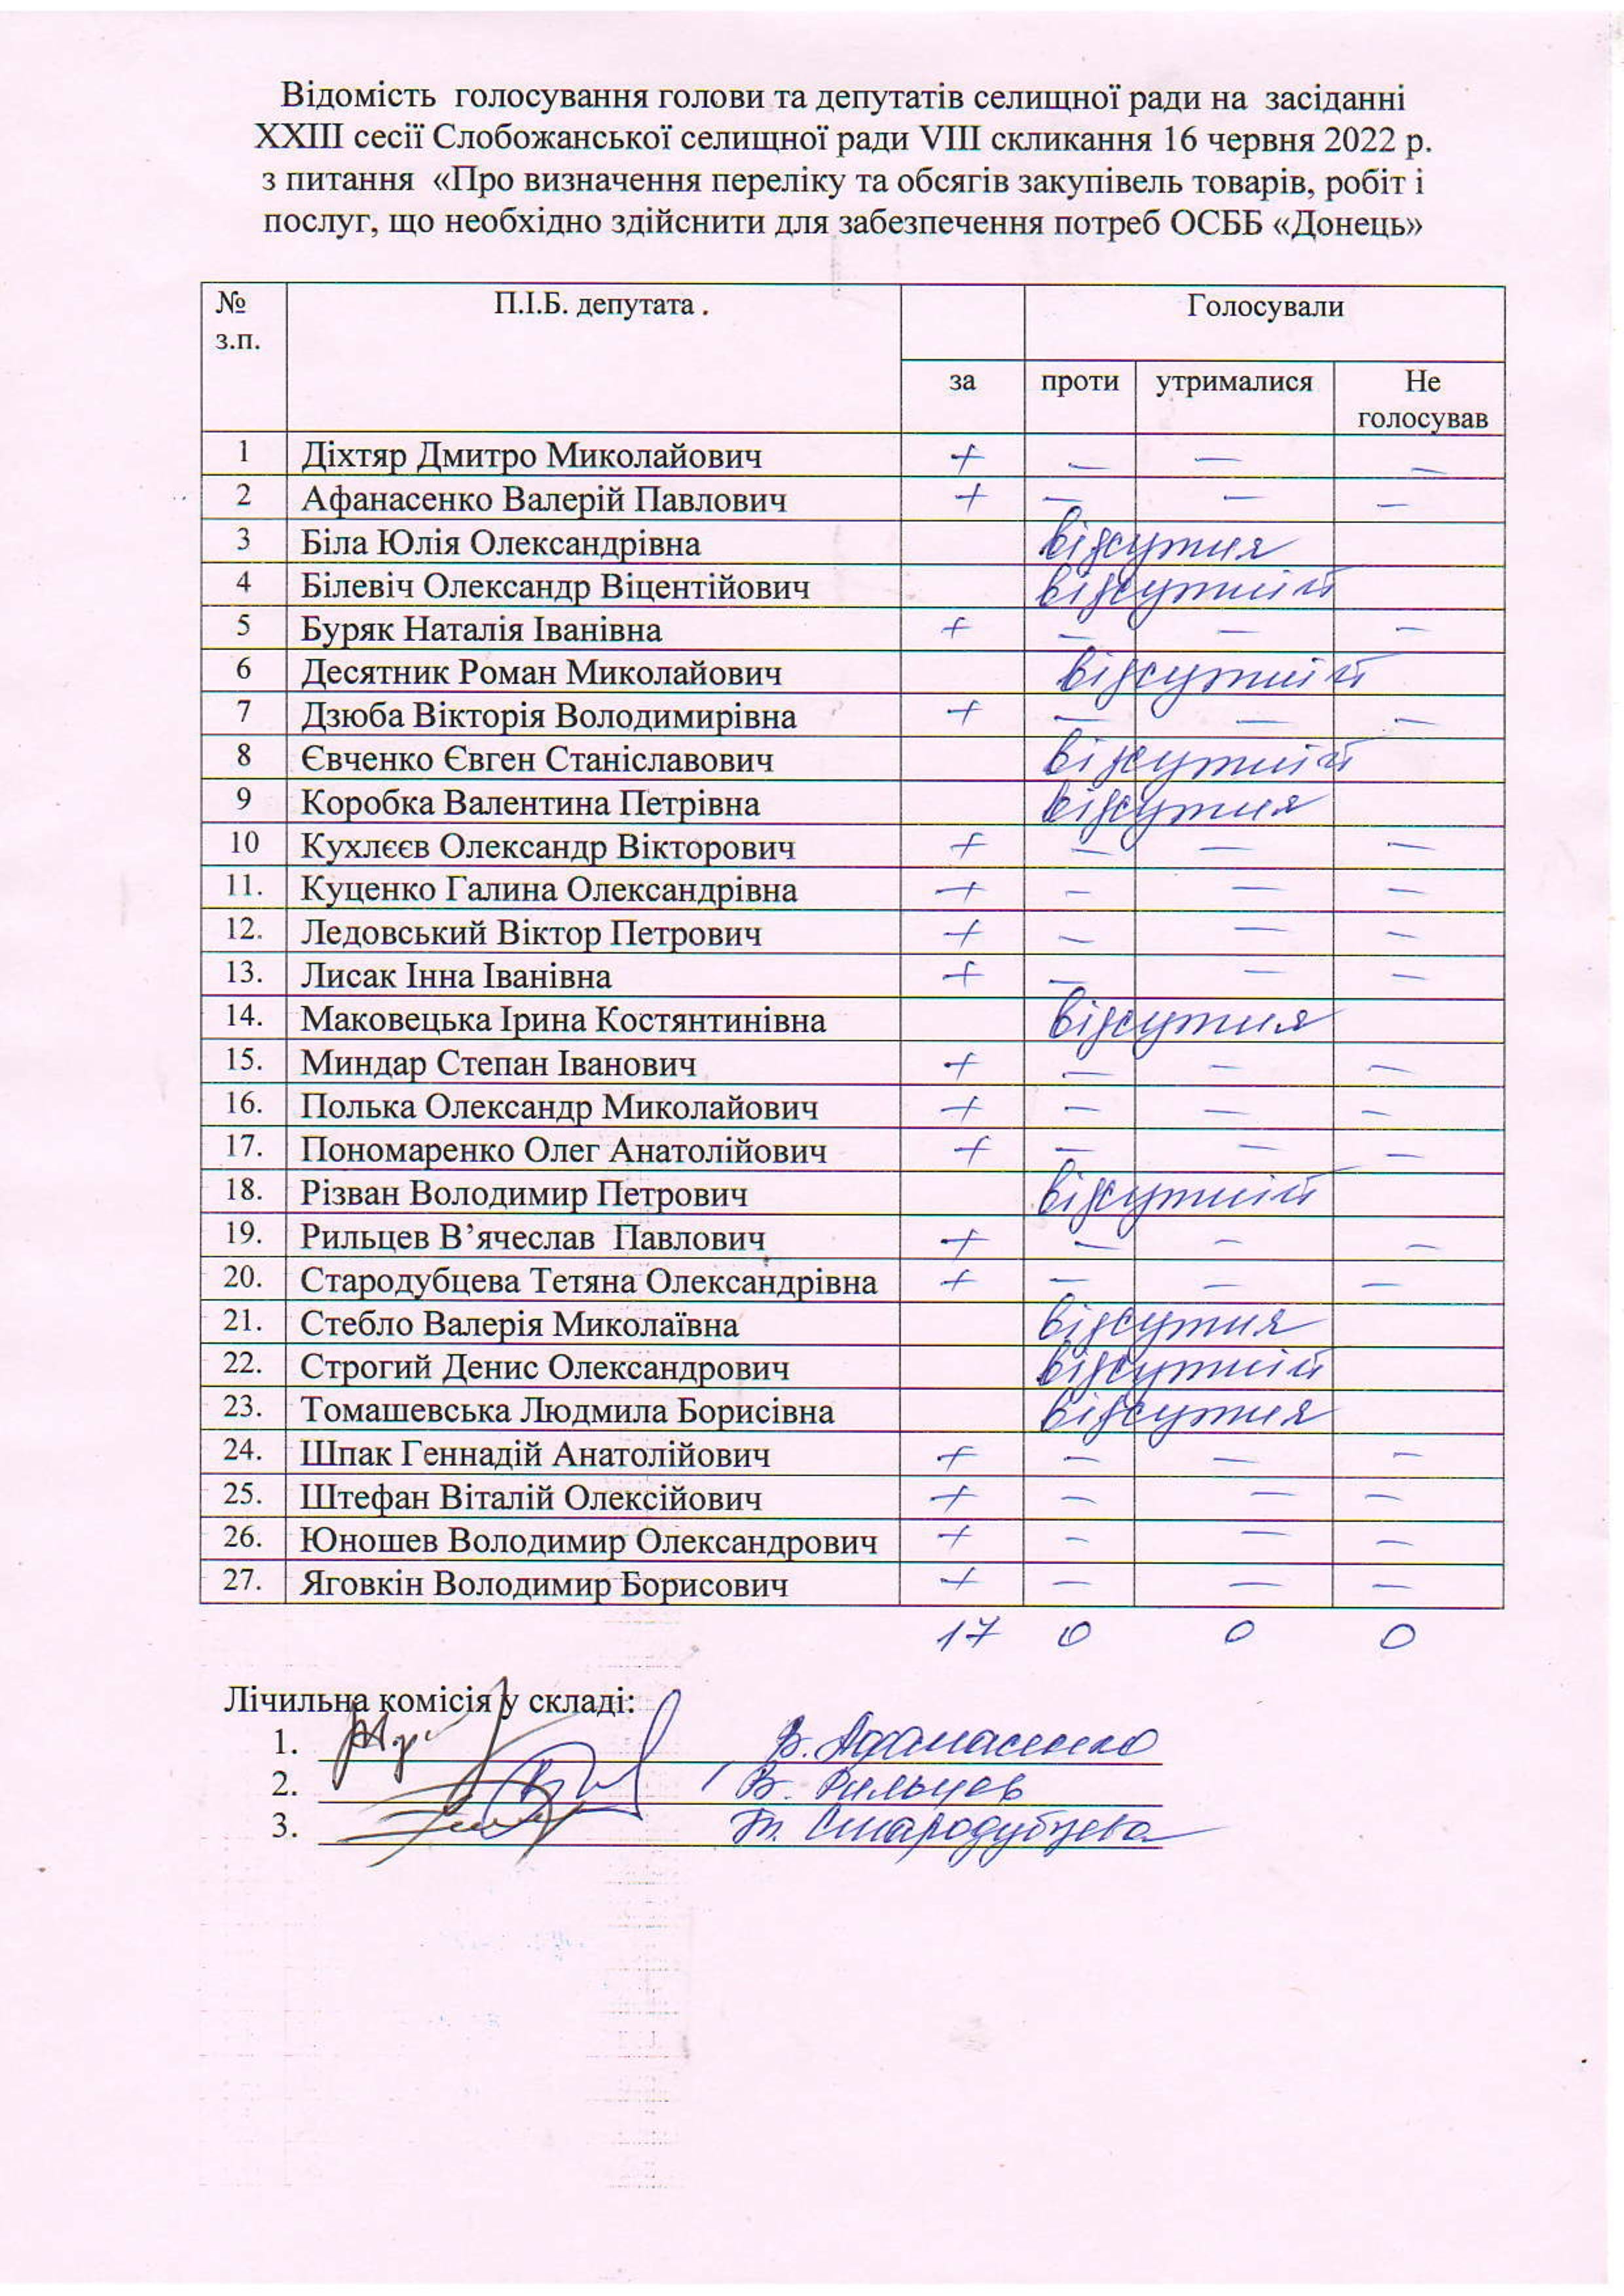 Відомість голосування голови та депутатів селищної ради на засіданні
XXIII сесії Слобожанської селищної ради VIII скликання 16 червня 2022 р.
з питання «Про визначення переліку та обсягів закупівель товарів, робіт і
послуг, що необхідно здійснити для забезпечення потреб ОСББ «Донець»
№ з.п. П.І.Б. депутата . Голосували
за проти утрималися Не голосував
1 Діхтяр Дмитро Миколайович + — — —
2 Афанасенко Валерій Павлович + — — —
3 Біла Юлія Олександрівна відсутня
4 Білевіч Олександр Віцентійович відсутній
5 Буряк Наталія Іванівна + — — —
6 Десятник Роман Миколайович відсутній
7 Дзюба Вікторія Володимирівна + — — —
8 Євченко Євген Станіславович відсутній
9 Коробка Валентина Петрівна відсутня
10 Кухлєєв Олександр Вікторович + — — —
11. Куценко Галина Олександрівна + — — —
12. Ледовський Віктор Петрович + — — —
13. Лисак Інна Іванівна + — — —
14. Маковецька Ірина Костянтинівна відсутня
15. Миндар Степан Іванович + — — —
16. Полька Олександр Миколайович + — — —
17. Пономаренко Олег Анатолійович + — — —
18. Різван Володимир Петрович відсутній
19. Рильцев В’ячеслав Павлович + — — —
20. Стародубцева Тетяна Олександрівна + — — —
21. Стебло Валерія Миколаївна відсутня
22. Строгий Денис Олександрович відсутній
23. Томашевська Людмила Борисівна відсутня
24. Шпак Геннадій Анатолійович + — — —
25. Штефан Віталій Олексійович + — — —
26. Юношев Володимир Олександрович + — — —
27. Яговкін Володимир Борисович + — — —
17 0 0 0
Лічильна комісія у складі:
1. В. Афанасенко
2. В. Рильцев
3. Т. Стародубцева